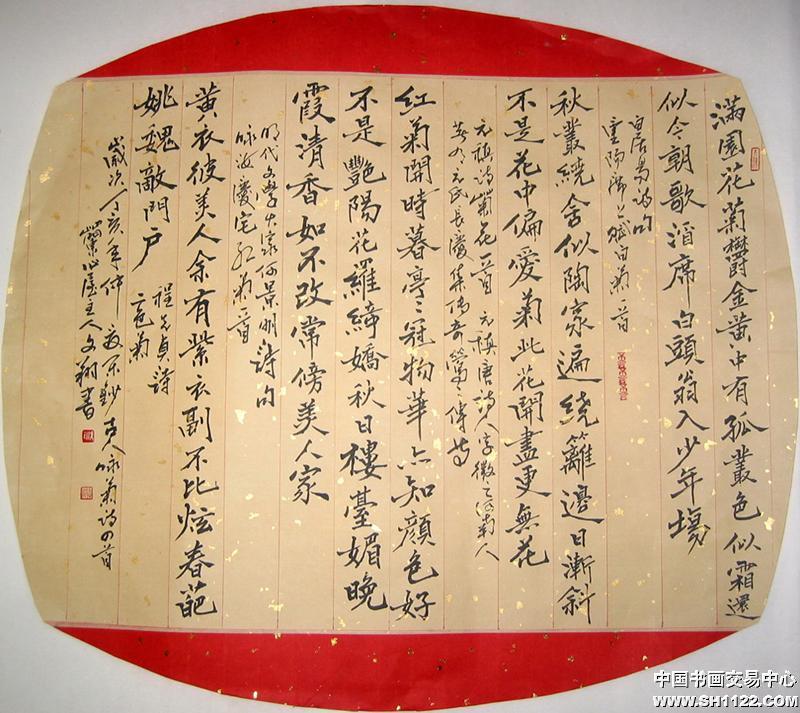 滿園花菊鬱金黃中有孤叢色似霜還
似今朝歌酒席白頭翁入少年場
白居易詩句
重陽席上賦白菊一首
秋叢繞舍似陶家遍繞籬邊日漸斜
不是花中偏愛菊此花開盡更無花
元稹詩菊花一首 元稹唐詩人字微之河南人
元氏長慶集傳奇鶯〻傳等
紅菊開時暮亭〻冠物華亦知顏色好
不是豔陽花羅綺嬌秋日樓臺媚晚
霞清香如不改常傍美人家
明代文學大家何景明詩句
詠汝慶宅紅菊一首
黃衣彼美人余有紫衣副不比炫春葩
姚魏敵門户
程先貞詩
二色菊
歲次丁亥年仲夏鈔古人詠菊詩四首
屋主人文翔書
中国书画交易中心
www.SH1122.com